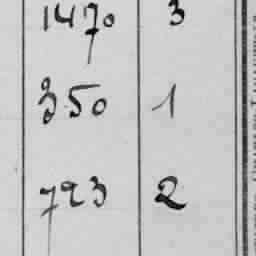 1470 3
350 1
793 2